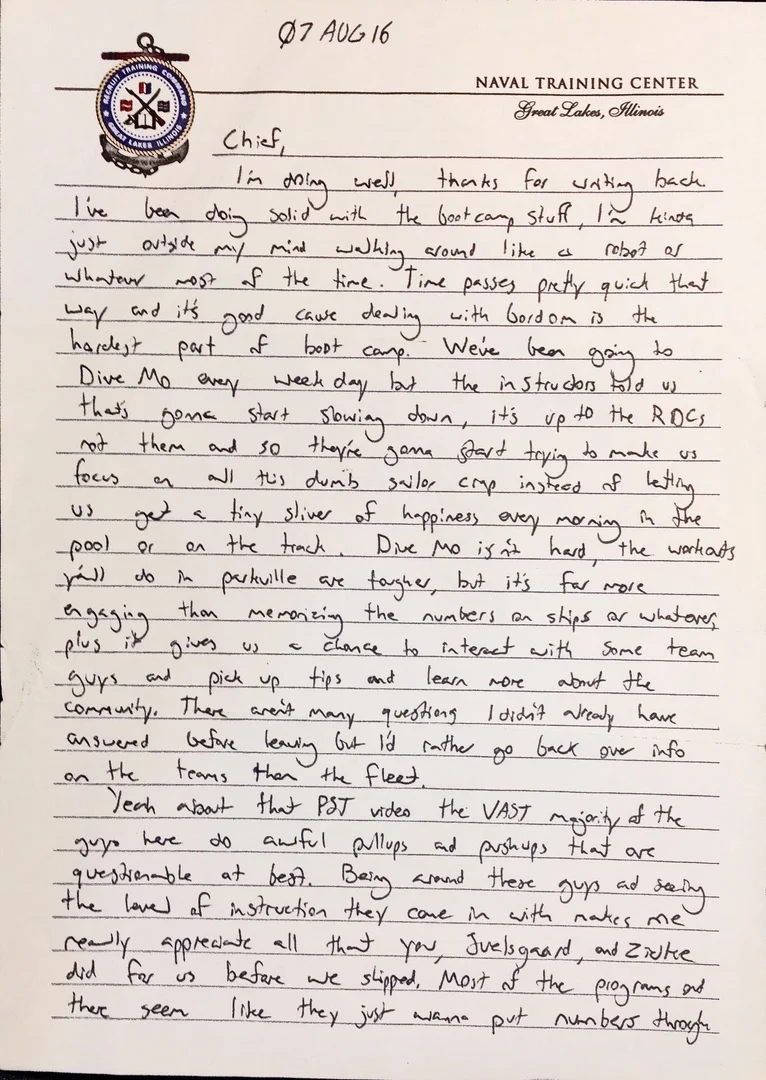 Ø7 AUG 16
RECRUIT TRAINING COMMAND
GREAT LAKES ILLINOIS
NAVAL TRAINING CENTER
Great Lakes, Illinois
Chief,
I'm doing well, thanks for writing back.
I've been doing solid with the bootcamp stuff, I'm kinda
just outside my mind walking around like a robot or
whatever most of the time. Time passes pretty quick that
way and it's good cause dealing with bordom is the
hardest part of boot camp. We've been going to
Dive Mo every week day but the instructors told us
that's gonna start slowing down, it's up to the RDCs
not them and so they're gonna start trying to make us
focus on all this dumb sailor crap instead of letting
us get a tiny sliver of happiness every morning in the
pool or on the track. Dive Mo isn't hard, the workouts
y'all do in parkville are tougher, but it's far more
engaging than memorizing the numbers on ships or whatever,
plus it gives us a chance to interact with some team
guys and pick up tips and learn more about the
community. There aren't many questions I didn't already have
answered before leaving but I'd rather go back over info
on the teams than the fleet.
Yeah about that PST video the VAST majority of the
guys here do awful pullups and pushups that are
questionable at best. Being around these guys and seeing
the level of instruction they come in with makes me
really appreciate all that you, Juelsgaard, and
did for us before we shipped. Most of the programs out
there seem like they just wanna put numbers through